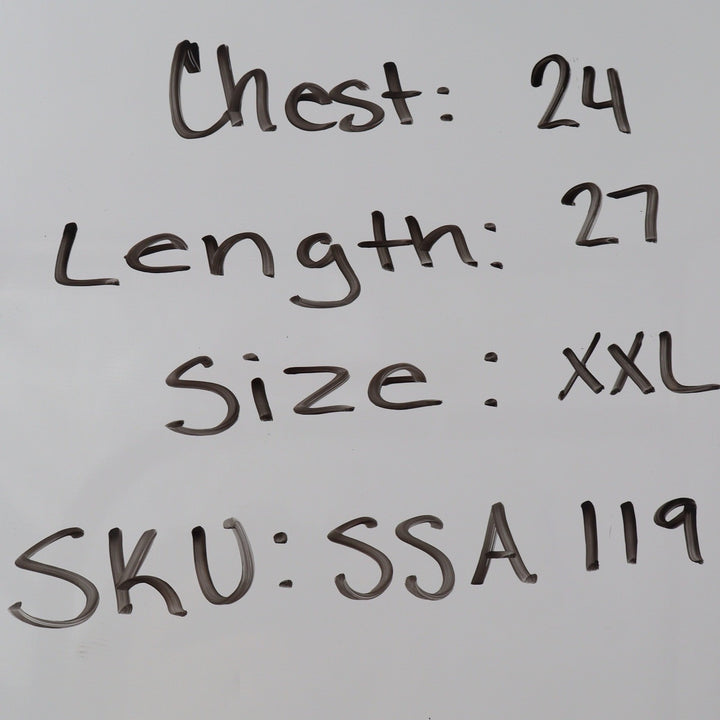 Chest: 24
Length: 27
Size: XXL
SKU: SSA 119